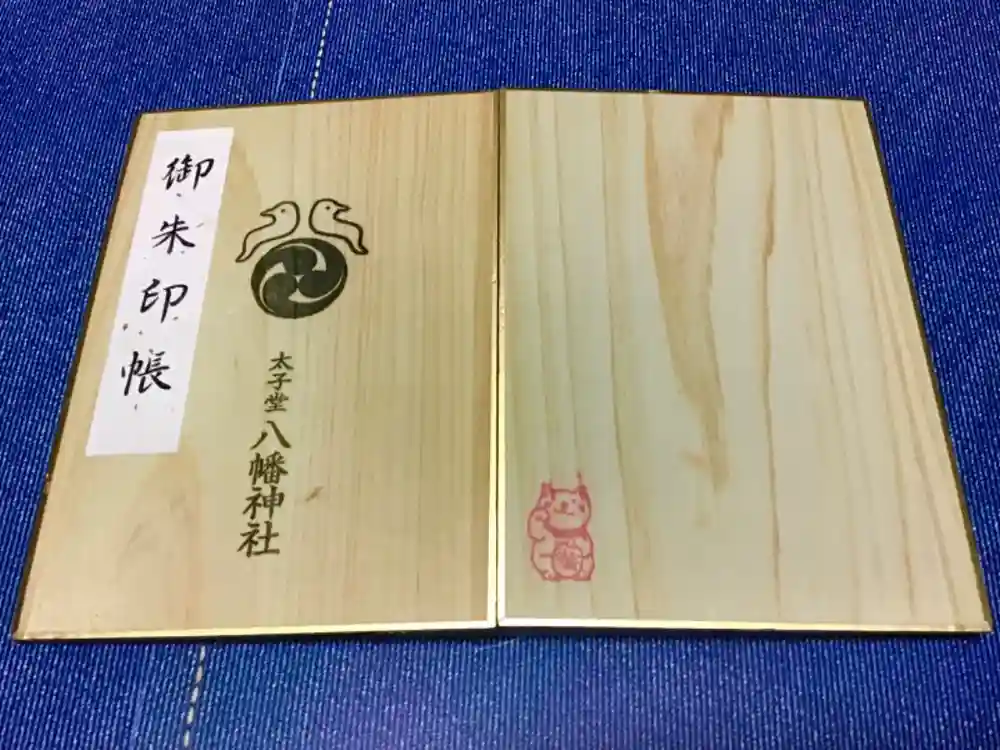 御朱印帳
太子堂八幡神社